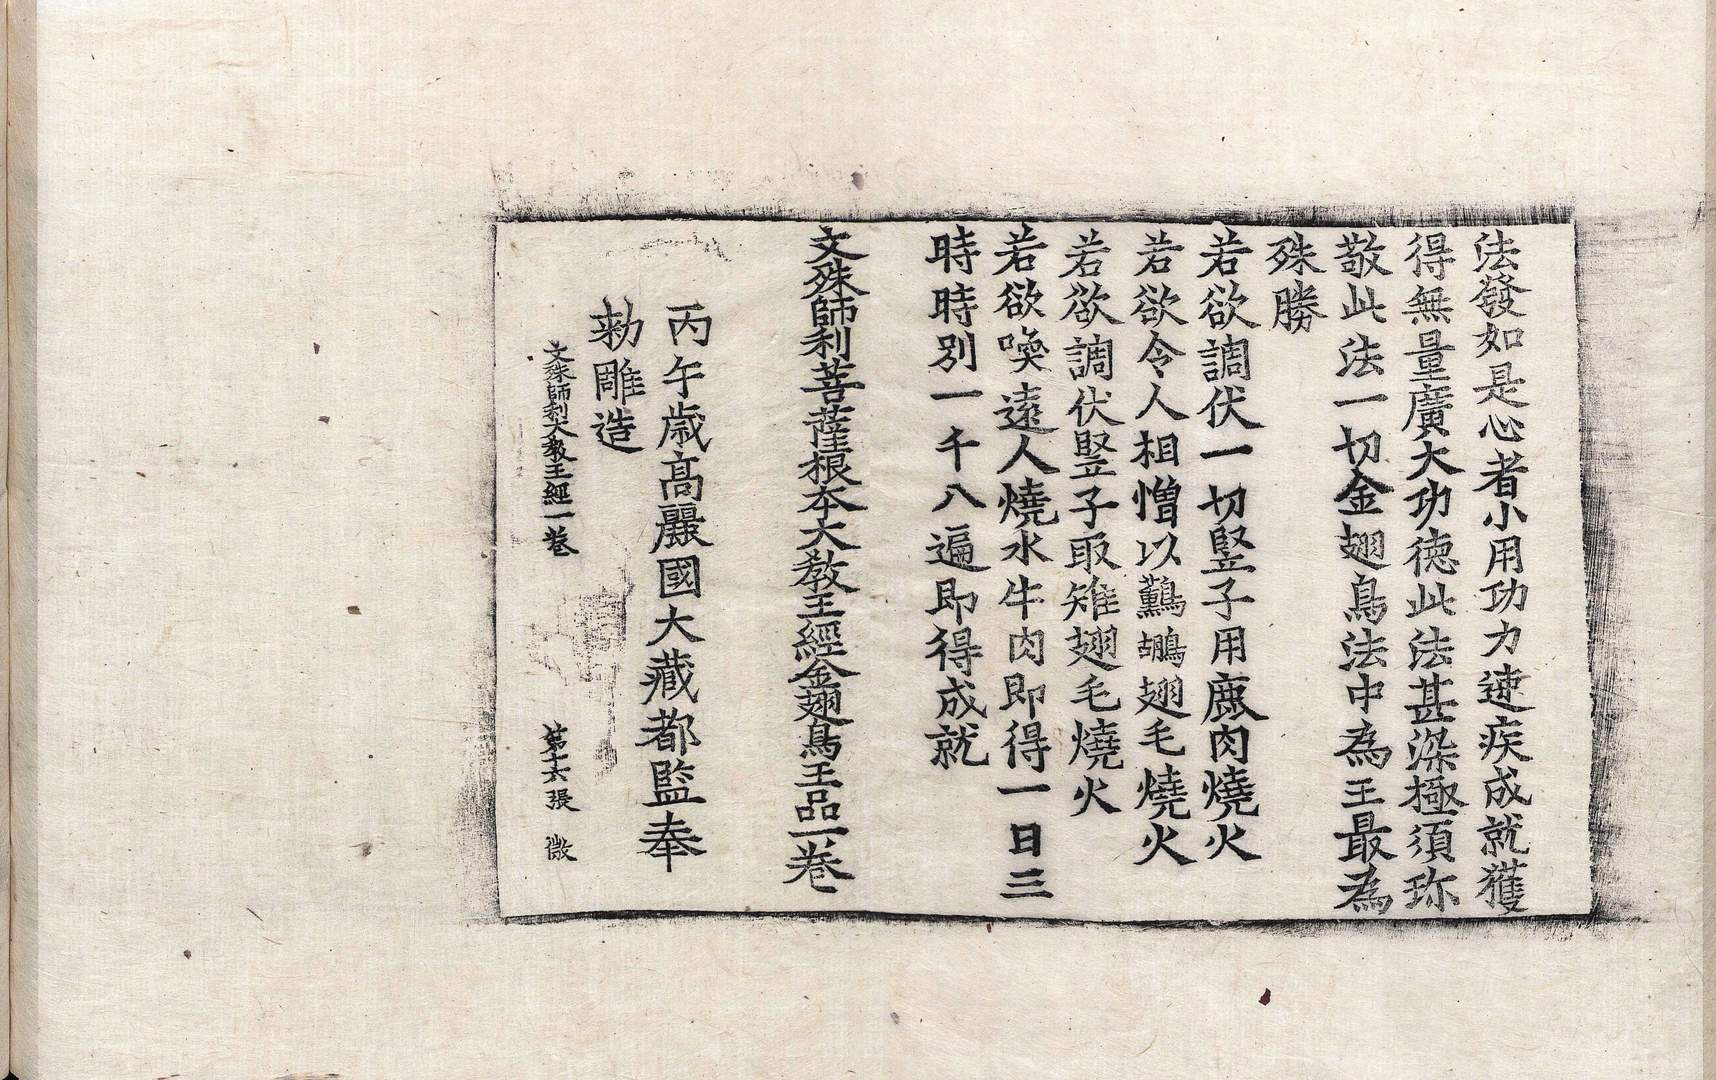 法發如是心者小用功力速疾成就獲
得無量廣大功德此法甚深極須珎
敬此法一切金翅鳥法中為王最為
殊勝
若欲調伏一切竪子用鹿肉燒火
若欲令人相憎以鸛鵂翅毛燒火
若欲調伏竪子取雉翅毛燒火
若欲喚遠人燒水牛肉即得一日三
時時別一千八遍即得成就
文殊師利菩薩根本大教王經金翅鳥王品一卷
丙午歲高麗國大藏都監奉
勑雕造
文殊師利大教王經一卷 第十六張 微